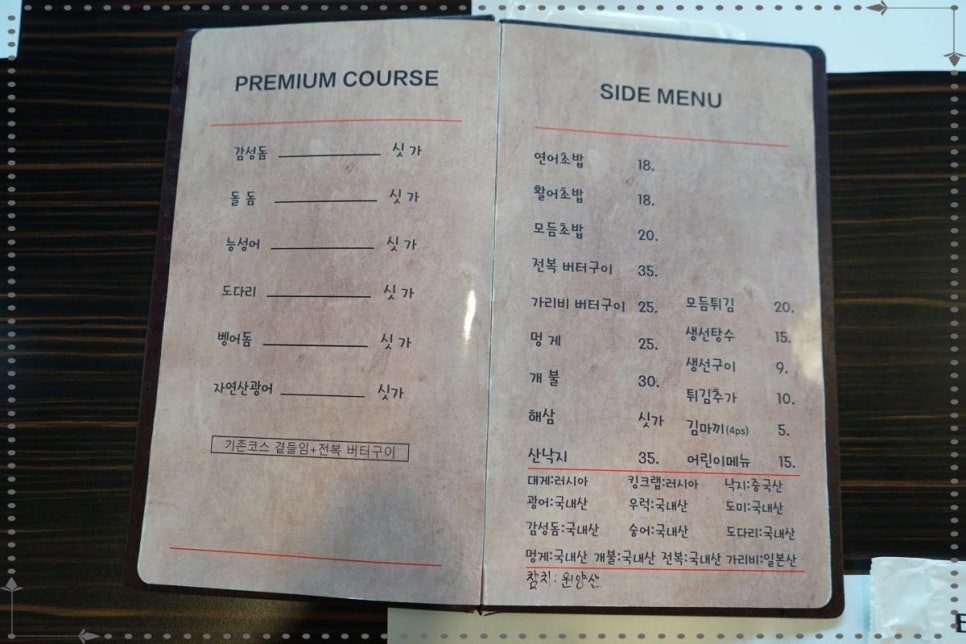 PREMIUM COURSE
감성돔 싯가
돌돔 싯가
능성어 싯가
도다리 싯가
벵어돔 싯가
자연산광어 싯가
기존코스 곁들임+전복 버터구이
SIDE MENU
연어초밥 18.
활어초밥 18.
모듬초밥 20.
전복 버터구이 35.
가리비 버터구이 25.
멍게 25.
개불 30.
해삼 싯가
산낙지 35.
모듬튀김 20.
생선탕수 15.
생선구이 9.
튀김추가 10.
김마끼(4ps) 5.
어린이메뉴 15.
대게:러시아 킹크랩:러시아 낙지:중국산
광어:국내산 우럭:국내산 도미:국내산
감성돔:국내산 숭어:국내산 도다리:국내산
멍게:국내산 개불:국내산 전복:국내산 가리비:일본산
참치: 원양산